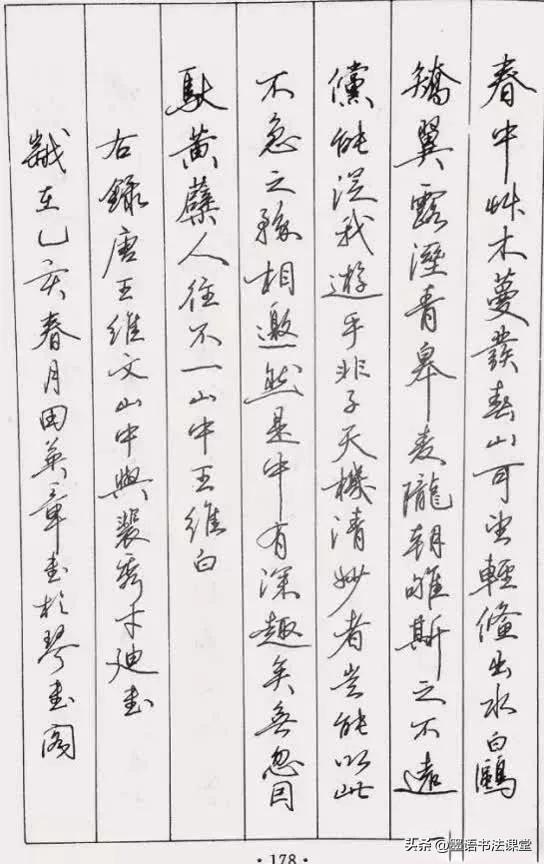 春中艸木蔓發春山可望輕鯈出水白鷗
矯翼露溼青皋麦隴朝雊斯之不遠
儻能從我遊乎非子天機清妙者豈能以此
不急之務相邀然是中有深趣矣無忽因
馱黃蘗人往不一山中王維白
右錄唐王維文山中與裴秀才迪書
歲在乙亥春月田英章書於琴書閣
·178·
头条 @墨语书法课堂